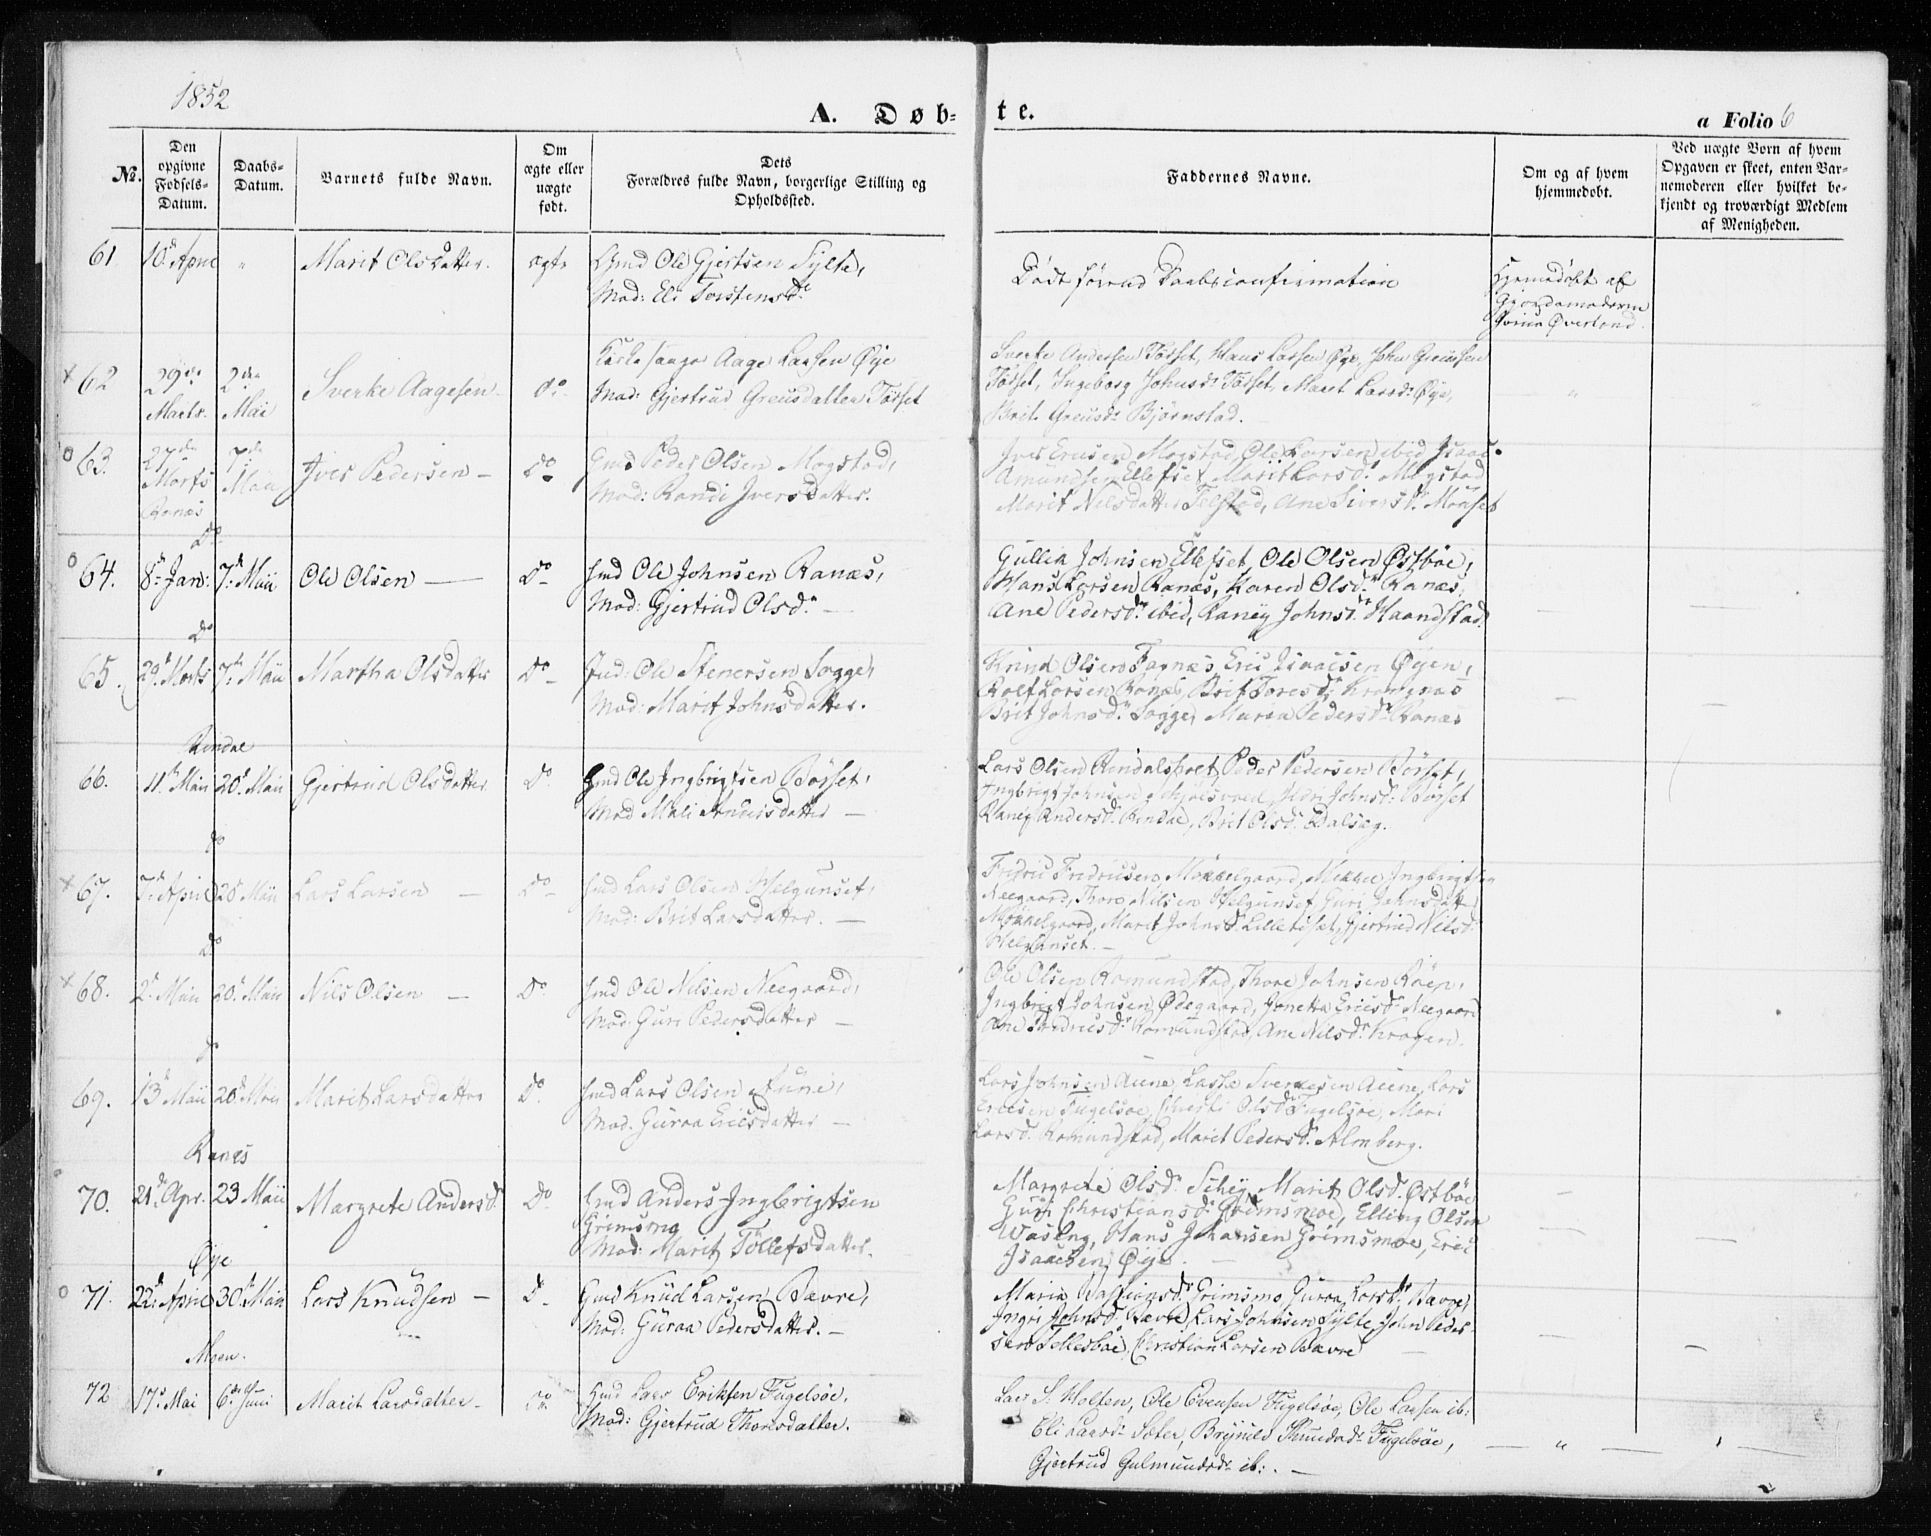 1852
A. Døb-
te.
a Folio 6
No.
Den opgivne Fødsels-Datum.
Daabs-Datum.
Barnets fulde Navn.
Om ægte eller uægte født.
Dets Forældres fulde Navn, borgerlige Stilling og Opholdssted.
Faddernes Navne.
Om og af hvem hjemmedøbt.
Ved uægte Børn af hvem Opgaven er skeet, enten Barnemoderen eller hvilket bekjendt og troværdigt Medlem af Menigheden.
61. 10d April " Marit Olsdatter. ægte
Gmd Ole Gjertsen Sylte,
Mod: Eli Torstensdr
Død førend Daabsconfirmation
Hjemedøbt af
Gjordemoderen
Øverland.
x 62 29de Marts. 2den Mai Sverke Aagesen. do.
Kirkesanger Aage Larsen Øye
Mod: Gjertrud Greusdatter Tørset
Sverke Andersen Tørset, Hans Larsen Øye, John Greusen
Tørset, Ingeborg Johnsdr Tørset, Marit Larsdr Øye,
Brit Greusdr Bjørnstad.
o 63. 27de Marts 7de Maii Iver Pedersen — Do
Gmd Peder Olsen Mogstad,
Mod: Randi Iversdatter.
Iver Ericsen Mogstad, Ole Larsen ibid, Isaac
Amundsen Ellefset, Marit Larsd. Mogstad
Marit Nilsdatter Telstad, Ane Siversdr Moasset
Ranæs
Do
o 64. 8d Jan: 7d Maii Ole Olsen — Do
Gmd Ole Johnsen Ranæs,
Mod: Gjertrud Olsdr —
Gullik Johnsen Ellefset, Ole Olsen Østbøe,
Hans Larsen Ranæs, Karen Olsdr Ranæs,
Ane Pedersdr ibid, Raney Johnsdr Haandstad.
Do
65. 29d Marts 7de Maii Martha Olsdatter Do
Ind: Ole Stenersen Sogge,
Mod: Marit Johnsdatter.
Knud Olsen Fagnæs, Eric Isvacsen Øyen,
Rolf Larsen Ranæs, Brit Toresdr Krangnæs
Brit Johnsdr Sogge, Maria Pedersdr Ranæs
Rindal
66. 11te Maii 20d Maii Gjertrud Olsdatter Do
Gmd Ole Ingbrigtsen Børset,
Mod Mali Andersdatter —
Lars Olsen Rindalsholt, Peder Pedersen Børset,
Ingbrigt Johnsen Skjølsvold, Sidri Johnsd: Børset
Raney Andersd. Rindal, Brit Olsd. Dalsæg.
Do
x 67. 7d April 20 Maii Lars Larsen — Do
Gmd Lars Olsen Helgunset,
Mod: Brit Larsdatter. —
Fridric Fridricsen Møkkelgaard, Mikkel Ingbrigtsen
Neegaard, Thore Nilsen Helgunset, Guri Johnsdatter
Møkkelgaard, Marit Johnsd. Lilletiset, Gjertrud Nilsd.
Helgunset. —
Do
x 68. 2d Maii 20d Maii Nils Olsen — Do
Gmd Ole Nilsen Neegaard,
Mod: Guri Pedersdatter —
Ole Olsen Romundstad, Thore Johnsen Røen,
Ingbrigt Johnsen Ødegaard, Jonetta Ericsd Neegaard
Ane Fredricsdr Romundstad, Ane Nilsdr Krogen.
Do
69. 13d Maii 20d Maii Marit Larsdatter Do
Gmd Lars Olsen Aune,
Mod. Guraa Ericsdatter —
Lars Johnsen Aune, Lasse Sverkesen Aune, Lars
Ericsen Fugelsøe, Chersti Olsdr Fugelsøe, Mari
Larsd. Romundstad, Marit Pedersd. Almberg.
Ranæs
70. 21d Apr. 23 Maii Margrete Andersd. Do
Gmd Anders Ingbrigtsen
Grimsmo
Mod: Marit Tøllefsdatter.
Margrete Olsdr Schey, Marit Olsd. Østbøe
Guri Christiansdr Grimsmoe, Elling Olsen
Waseng, Hans Johansen Grimsmoe, Eric
Isaacsen Øye
Øye
o 71. 22d April 30d Maii Lars Knudsen — Do
Gmd Knud Larsen Bævre,
Mod: Guraa Pedersdatter. —
Maria Grimsmo, Guraa Larsdr Bævre,
Ingri Johnsd. Bævre, Lars Johnsen Sylte, John Peder-
sen Tellesbøe, Christian Larsen Bævre
Moen.
72 17d Mai 6te Juni Marit Larsdatter. do
Gmd Lars Eriksen Fugelsøe,
Mod: Gjertrud Thoresdatter.
Lars S. Holten, Ole Evensen Fugelsøe, Ole Larsen ib:
Eli Larsdr Sæter, Brynild Knudsdr Fugelsøe,
Gjertrud Gulmundsdr ib:. —